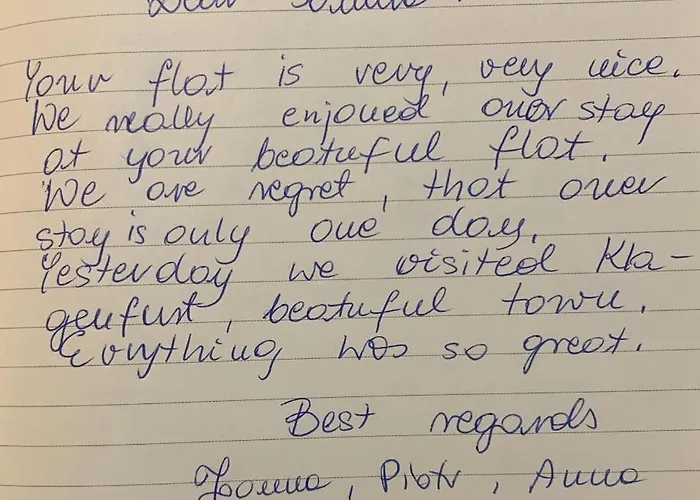 Your flat is very, very nice.
We really enjoued ouer stay
at your beatuful flat.
We are regret, that ouer
stay is only one day.
Yesterday we visited Kla-
genfurt, beatuful town.
Evrything was so great.
Best regards
Piotr, Anna